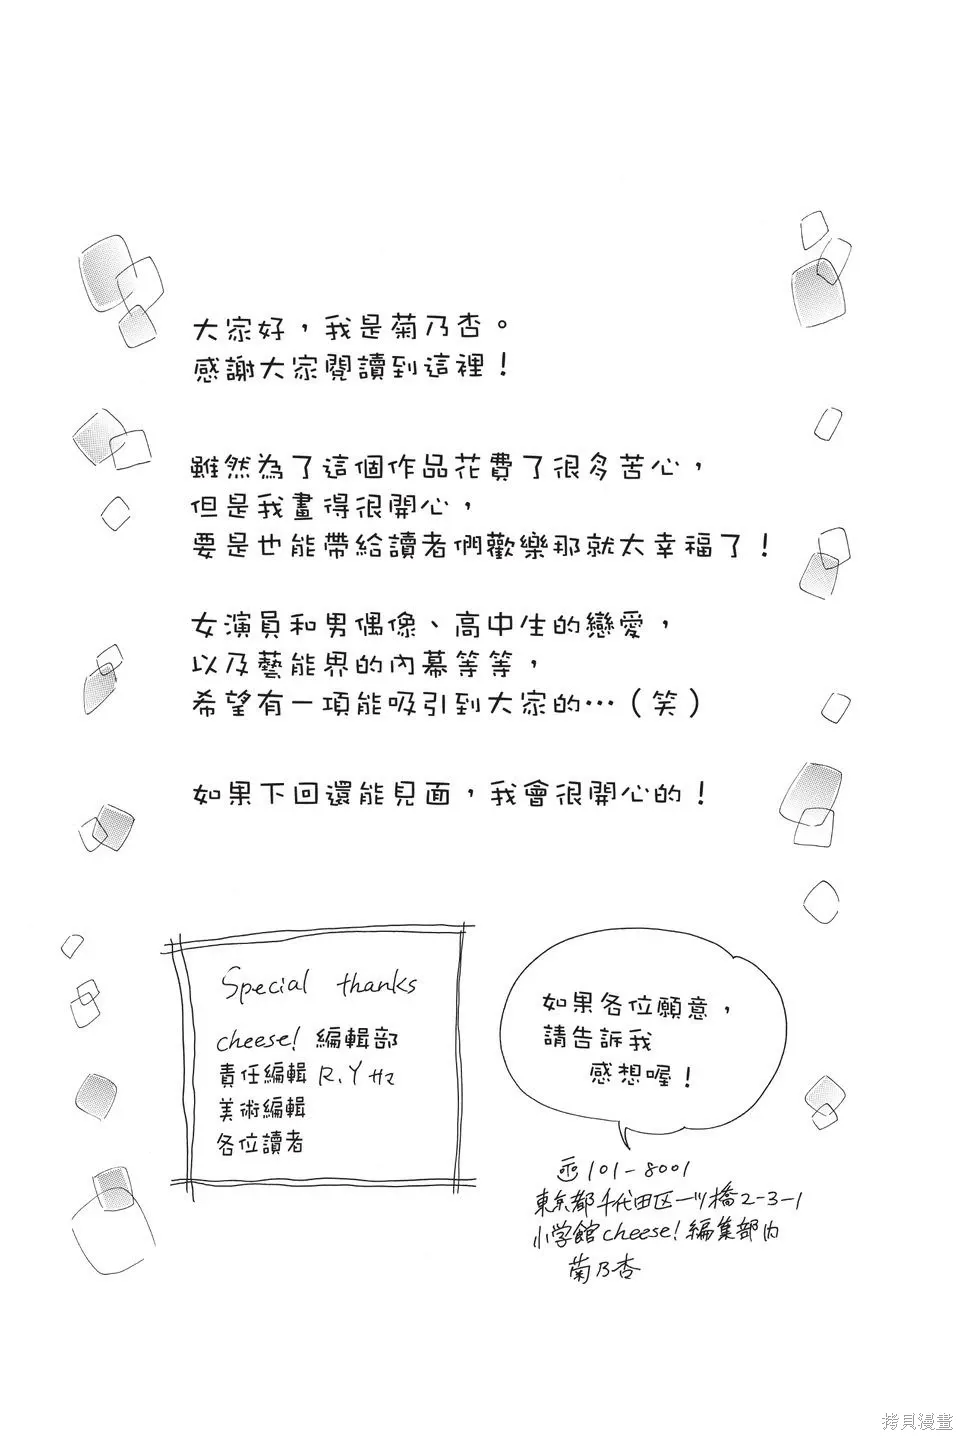 大家好，我是菊乃杏。
感謝大家閱讀到這裡！
雖然為了這個作品花費了很多苦心，
但是我畫得很開心，
要是也能帶給讀者們歡樂那就太幸福了！
女演員和男偶像、高中生的戀愛，
以及藝能界的內幕等等，
希望有一項能吸引到大家的…（笑）
如果下回還能見面，我會很開心的！
Special thanks
cheese! 編輯部
責任編輯 R.Y サマ
美術編輯
各位讀者
如果各位願意，
請告訴我
感想喔！
〠101-8001
東京都千代田区一ツ橋2-3-1
小学館cheese!編集部内
菊乃杏
拷貝漫畫